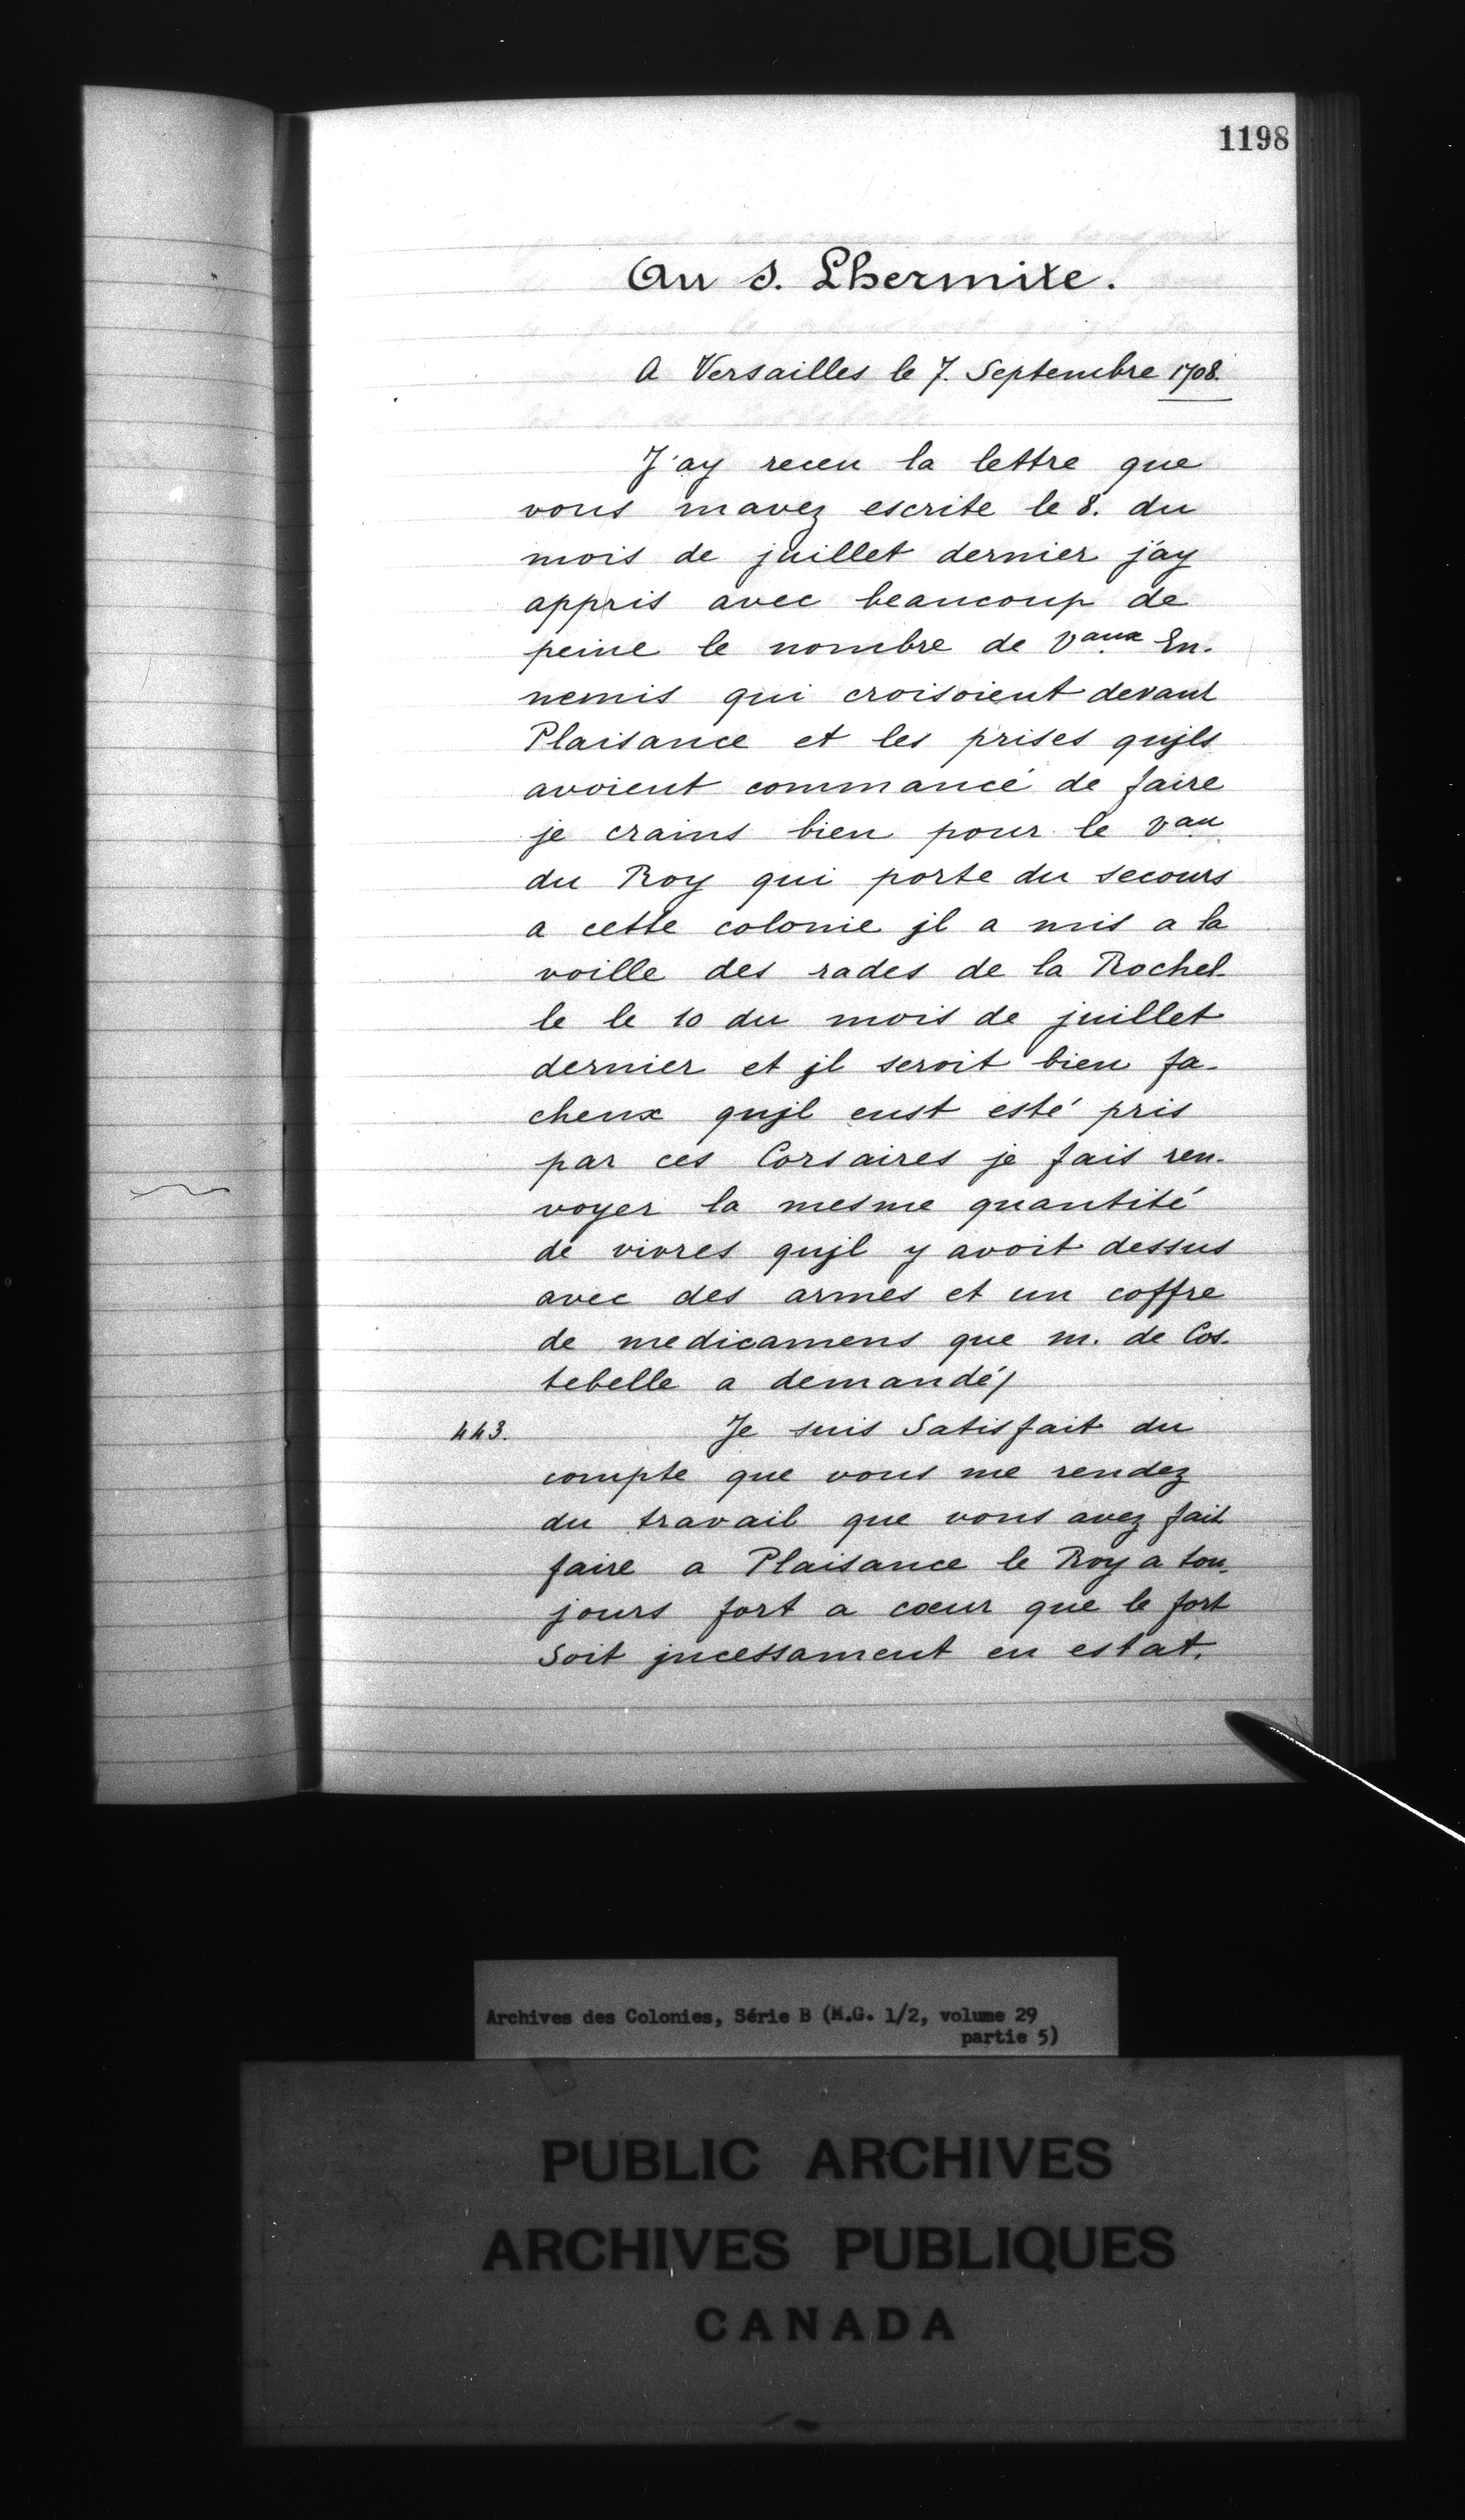 1198
Au s. Lhermite.
A Versailles le 7. Septembre 1708.
J'ay receu la lettre que
vous mavez escrite le 8. du
mois de juillet dernier j'ay
appris avec beaucoup de
peine le nombre de Vaux En-
nemis qui croisoient devant
Plaisance et les prises qujls
avoient commancé de faire
je crains bien pour le Vau
du Roy qui porte du secours
a cette colonie jl a mis a la
voille des rades de la Rochel-
le le 10 du mois de juillet
dernier et jl seroit bien fa-
cheux qujl eust esté pris
par ces Corsaires je fais ren-
voyer la mesme quantité
de vivres qujl y avoit dessus
avec des armes et un coffre
de medicamens que m. de Cos-
tebelle a demandé/
443. Je suis Satisfait du
compte que vous me rendez
du travail que vous avez fait
faire a Plaisance le Roy a tou-
jours fort a cœur que le fort
Soit jncessament en estat.
Archives des Colonies, Série B (M.G. 1/2, volume 29
partie 5)
PUBLIC ARCHIVES
ARCHIVES PUBLIQUES
CANADA